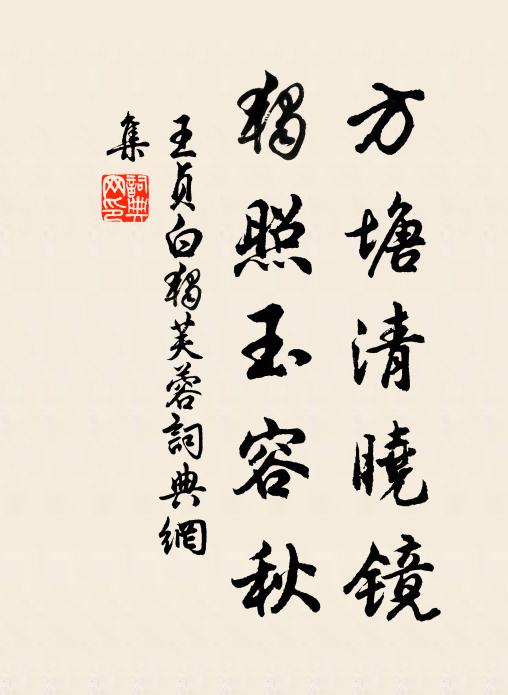 方塘清曉镜
獨照玉容秋
王貞白獨芙蓉詞典網
集
詞典
网印